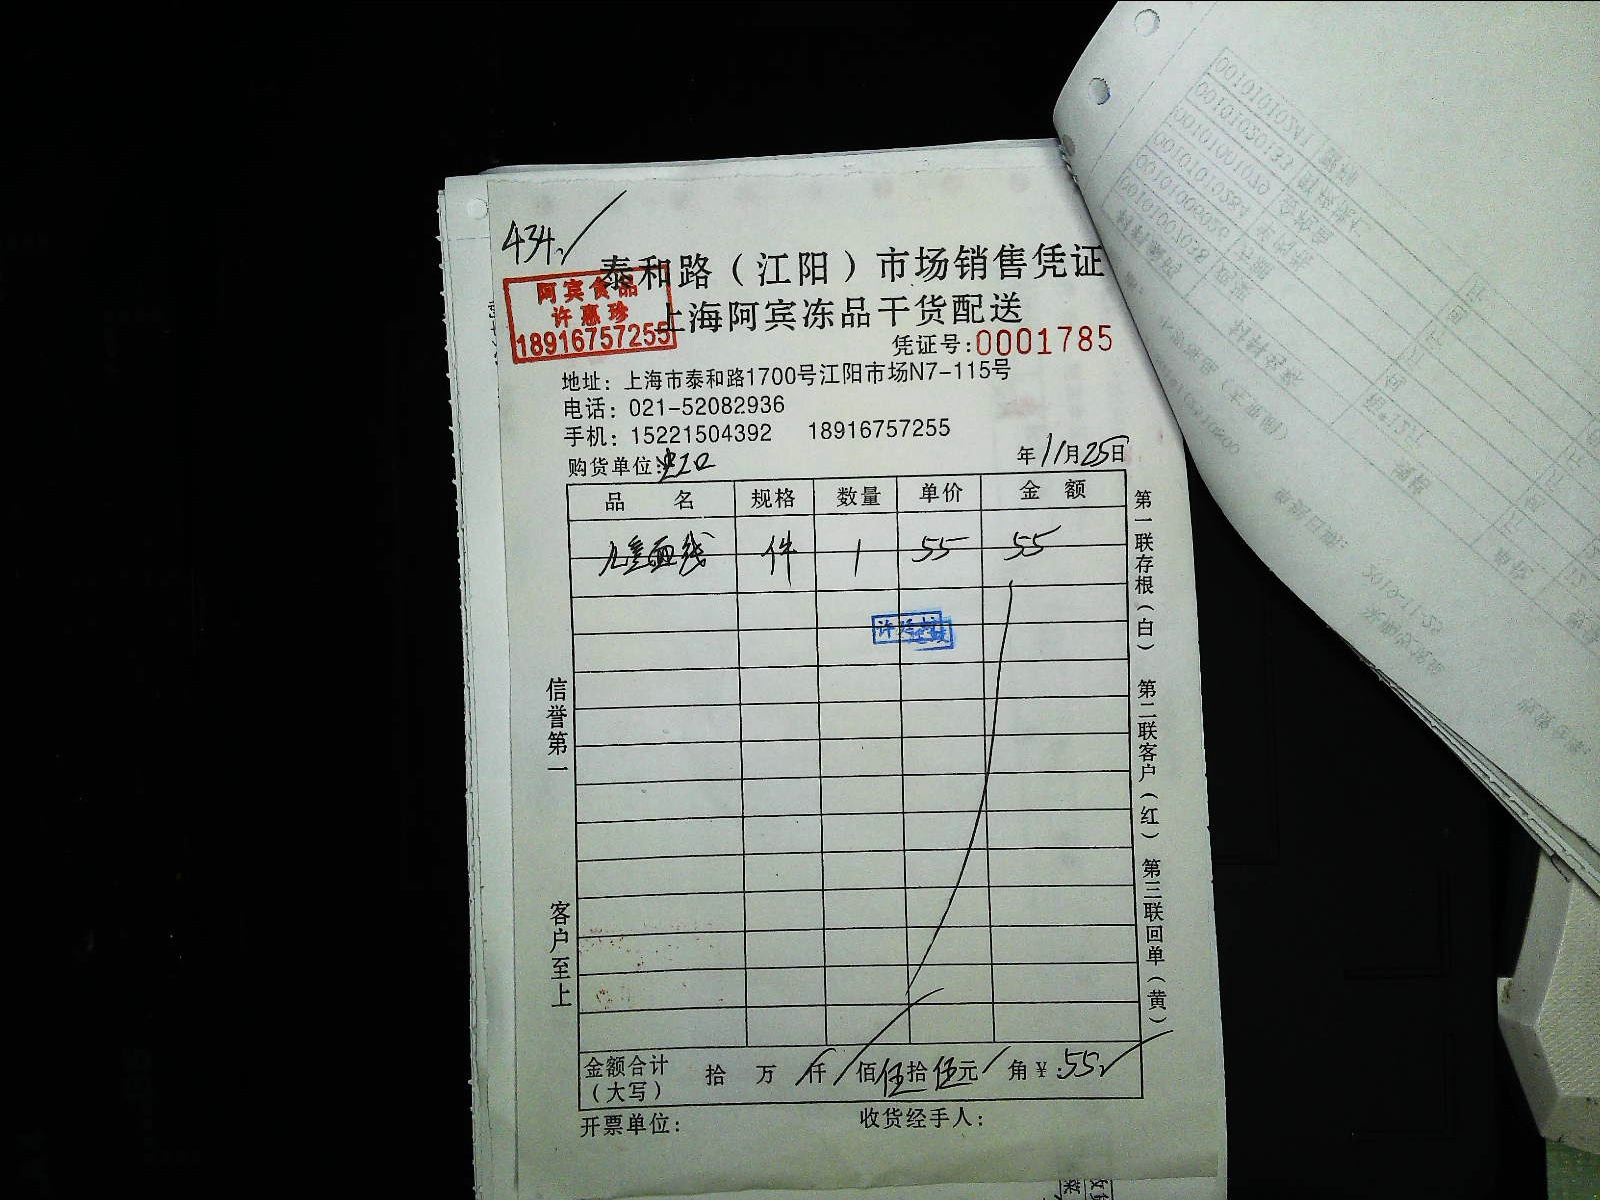 434
泰和路（江阳）市场销售凭证
阿宾食品
许惠珍
18916757255
上海阿宾冻品干货配送
凭证号:0001785
地址：上海市泰和路1700号江阳市场N7-115号
电话：021-52082936
手机：15221504392 18916757255
购货单位:
年11月25日
品 名 规格 数量 单价 金 额
儿童面线 件 1 55 55
信誉第一
客户至上
第一联存根（白） 第二联客户（红） 第三联回单（黄）
金额合计（大写） 拾 万 仟 佰伍拾伍元 角¥:55
开票单位: 收货经手人: